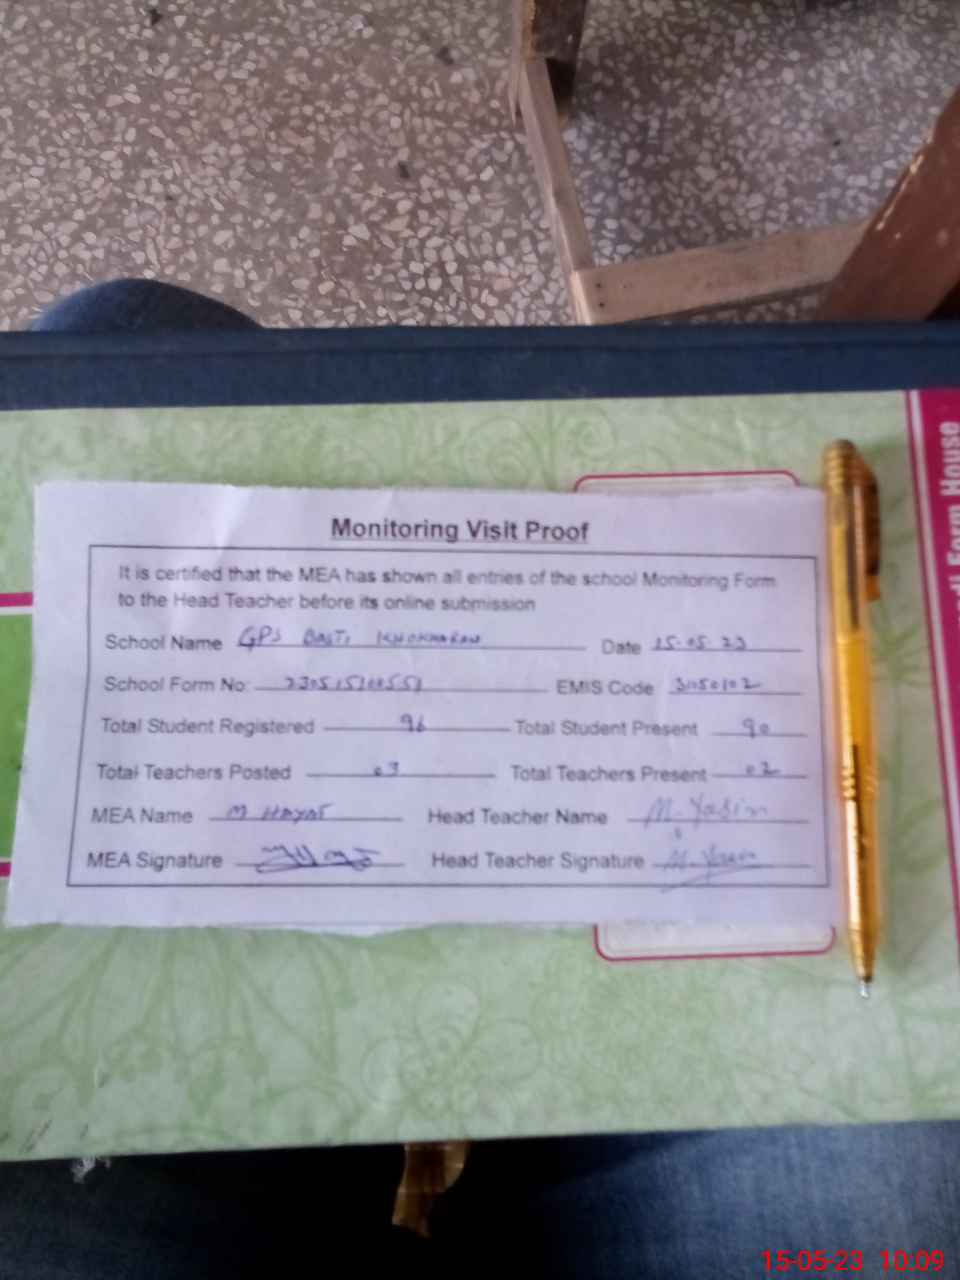 Form House
Monitoring Visit Proof
It is certified that the MEA has shown all entries of the school Monitoring Form
to the Head Teacher before its online submission
School Name GPS BASTI KHOKHARAN Date 15-05-23
School Form No: EMIS Code
Total Student Registered 96 Total Student Present 90
Total Teachers Posted 03 Total Teachers Present 02
MEA Name M HAYAT Head Teacher Name M. Yasin
MEA Signature Head Teacher Signature M. Yasin
15-05-23 10:09